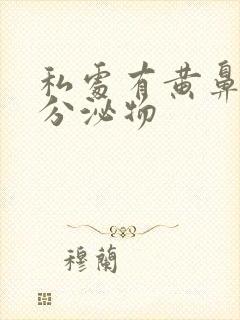 私處有黄鼻
分泌物
穆蘭